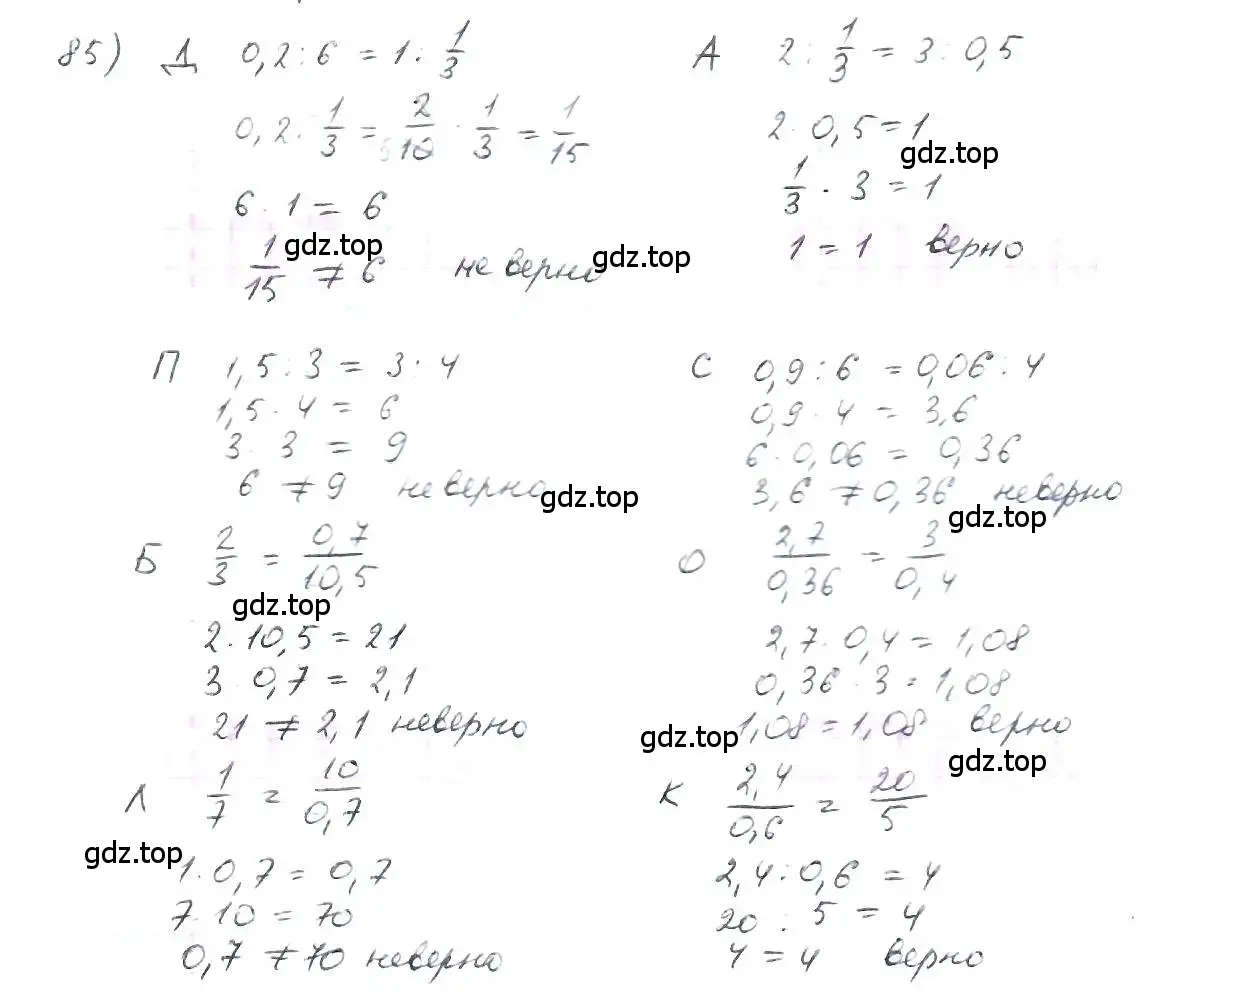 85) Д 0,2 : 6 = 1 : 1/3
0,2 · 1/3 = 2/10 · 1/3 = 1/15
6 · 1 = 6
gdz.top
1/15 ≠ 6 не верно
gdz.top
А 2 : 1/3 = 3 : 0,5
2 · 0,5 = 1
gdz.top
1/3 · 3 = 1
1 = 1 верно
П 1,5 : 3 = 3 : 4
1,5 · 4 = 6
3 · 3 = 9
6 ≠ 9 неверно
gdz.top
С 0,9 : 6 = 0,06 : 4
0,9 · 4 = 3,6
6 · 0,06 = 0,36
3,6 ≠ 0,36 неверно
gdz.top
Б 2/3 = 0,7/10,5
gdz.top
2 · 10,5 = 21
3 · 0,7 = 2,1
21 ≠ 2,1 неверно
О 2,7/0,36 = 3/0,4
2,7 · 0,4 = 1,08
0,36 · 3 = 1,08
gdz.top
1,08 = 1,08 верно
gdz.top
Л 1/7 = 10/0,7
gdz.top
1 · 0,7 = 0,7
7 · 10 = 70
0,7 ≠ 70 неверно
К 2,4/0,6 = 20/5
2,4 : 0,6 = 4
20 : 5 = 4
4 = 4 верно